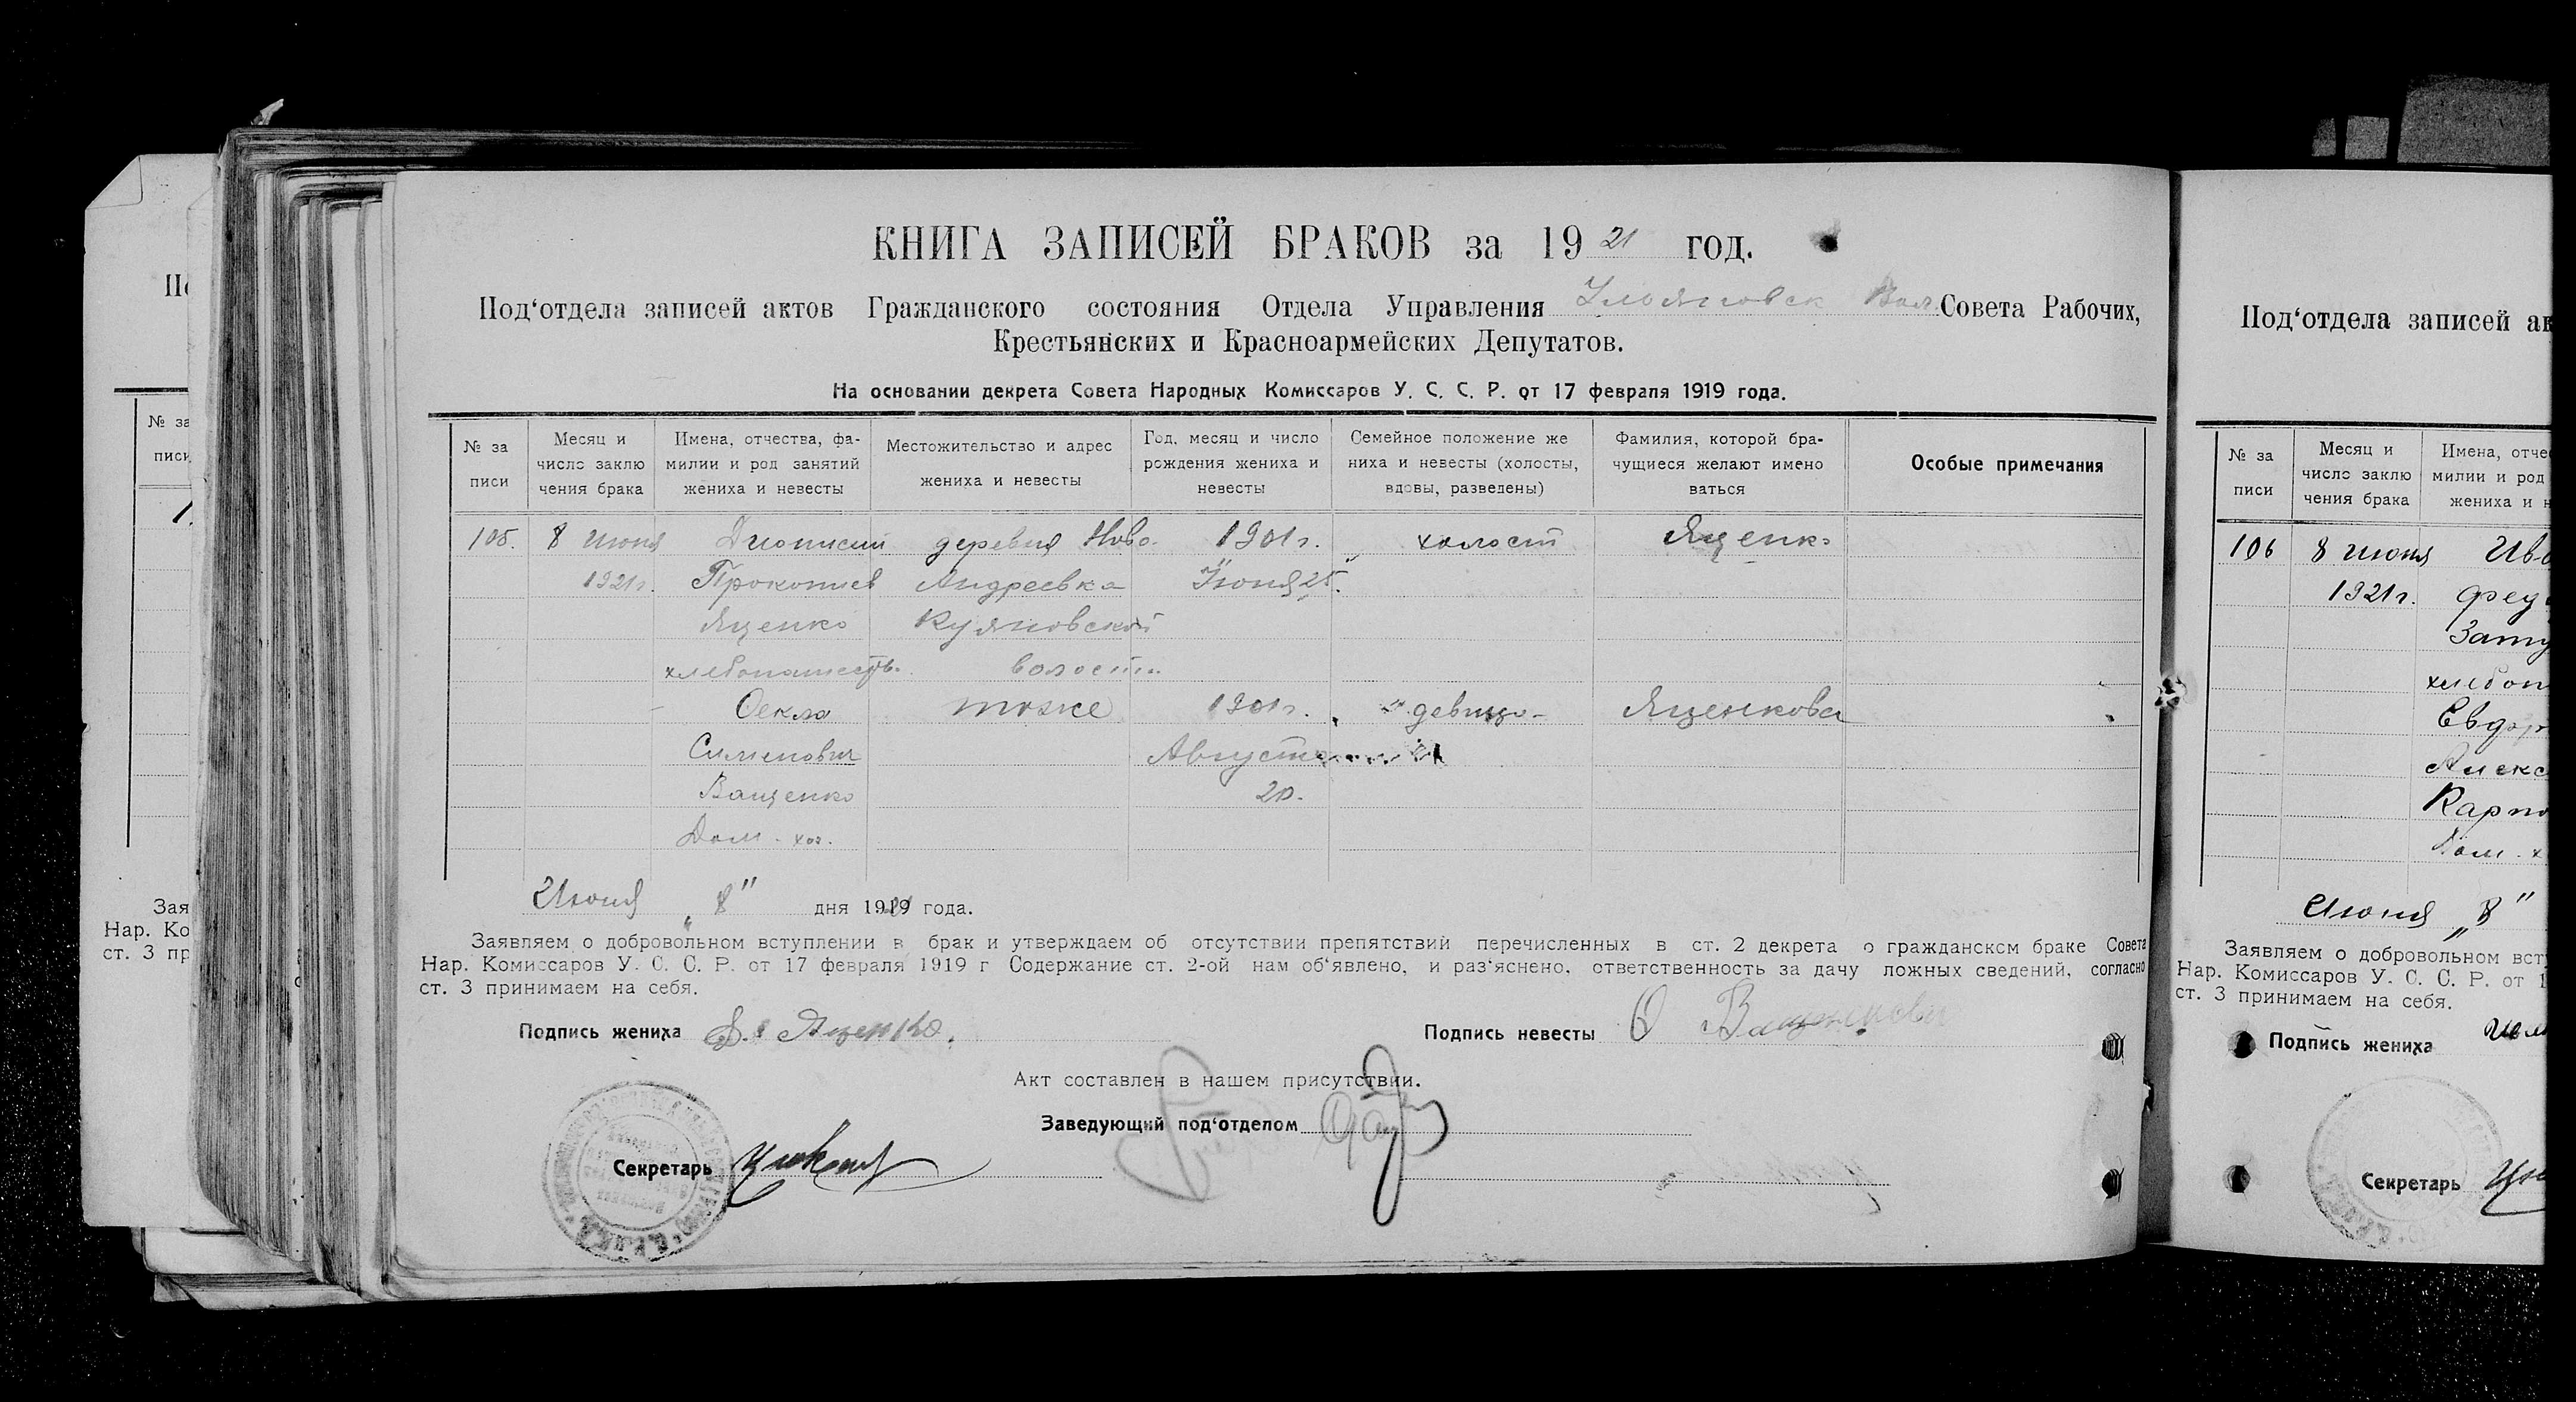 КНИГА ЗАПИСЕЙ БРАКОВ за 1921 год.
Под‘отдела записей актов Гражданского состояния Отдела Управления Вол. Совета Рабочих,
Крестьянских и Красноармейских Депутатов.
На основании декрета Совета Народных Комиссаров У. С. С. Р. от 17 февраля 1919 года.
№ за
писи
Месяц и
число заклю
чения брака
Имена, отчества, фа-
милии и род занятий
жениха и невесты
Местожительство и адрес
жениха и невесты
Год, месяц и число
рождения жениха и
невесты
Семейное положение же
ниха и невесты (холосты,
вдовы, разведены)
Фамилия, которой бра-
чущиеся желают имено
ваться
Особые примечания
105. 8 июня Дионисий деревня Ново- 1901 г. холост Яценко
1921 г. Прокопиев Андреевка Июня 25.
Яценко Куяновской
хлебопашеств. волости
Фекла тоже 1901 г. девица Яценкова
Сименович Августа
Ващенко 20.
Дом. хоз.
Июня „8" дня 1921 года.
Заявляем о добровольном вступлении в брак и утверждаем об отсутствии препятствий перечисленных в ст. 2 декрета о гражданском браке Совета
Нар. Комиссаров У. С. С. Р. от 17 февраля 1919 г Содержание ст. 2-ой нам об‘явлено, и раз‘яснено, ответственность за дачу ложных сведений, согласно
ст. 3 принимаем на себя.
Подпись жениха Яценко.
Подпись невесты Ф Ващенкова
Акт составлен в нашем присутствии.
Заведующий под‘отделом
Секретарь
Под‘отдела записей ак
№ за
писи
Месяц и
число заклю
чения брака
Имена, отче
милии и род
жениха и н
106 8 июня Ив
1921 г. Фед
Зат
хлебоп
Евдо
Алекс
Карпо
Дом. х
Июня „8"
Заявляем о добровольном вст
Нар. Комиссаров У. С. С. Р. от 1
ст. 3 принимаем на себя.
Подпись жениха
Секретарь
№ за
писи
Зая
Нар. Ко
ст. 3 пр